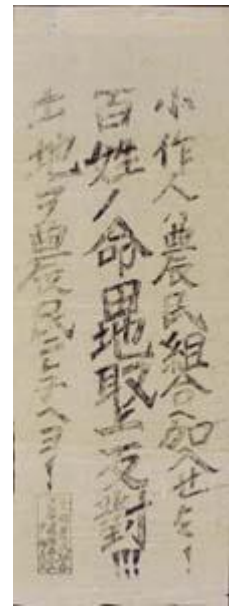 小作人ハ農民組合ヘ加入せよ!
百姓ノ命田地取上反對!!!
土地ヲ農民ニ与ヘヨ!